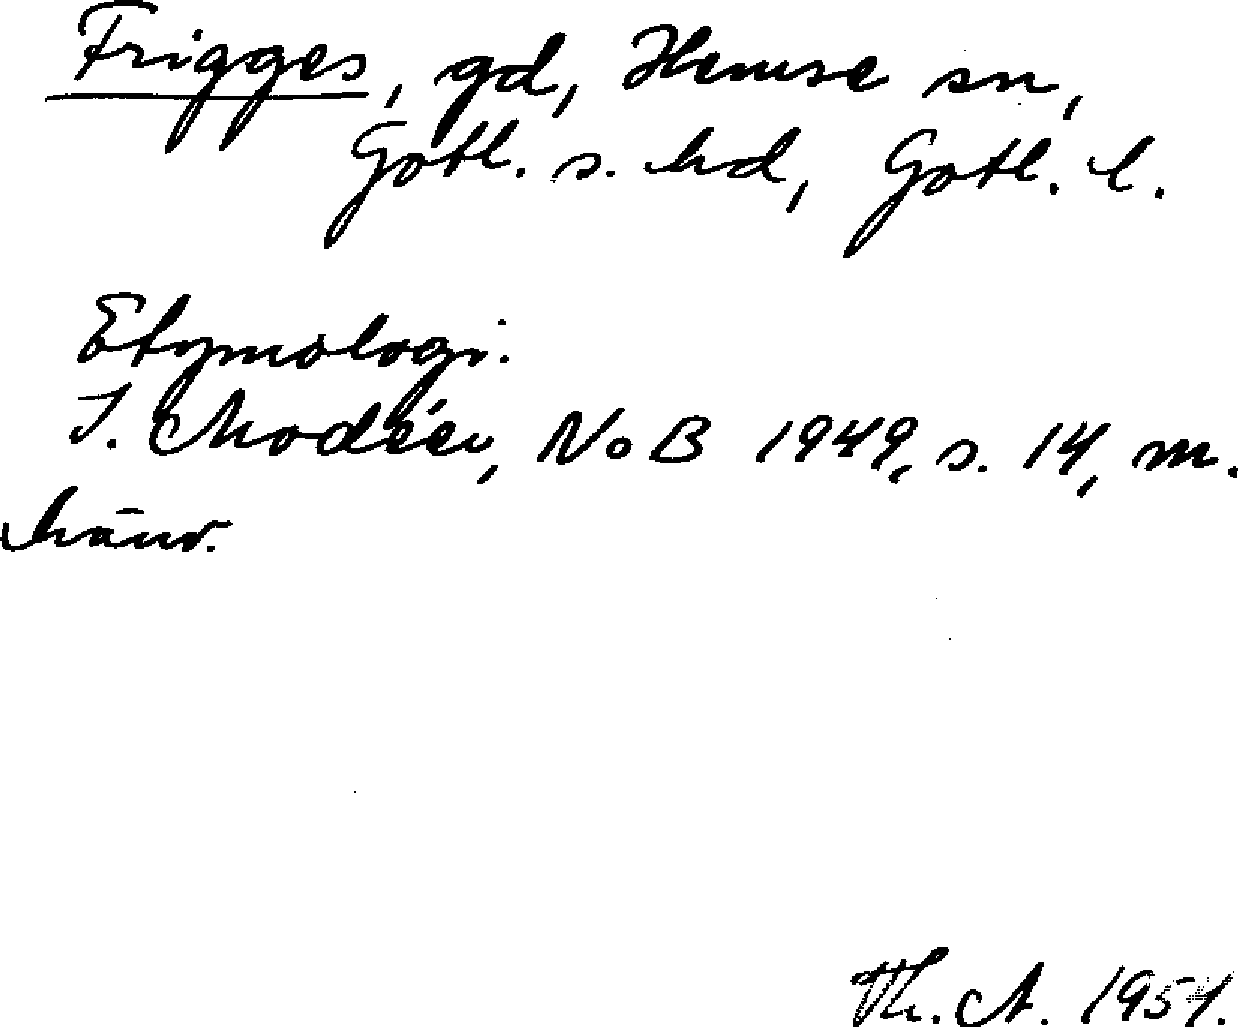 Frigges, gd, Hemse sn,
Gotl. s. hd, Gotl. l.
Etymologi.
I. Modéer, NoB 1949, s. 14, m.
hänv.
Th. A. 1951.